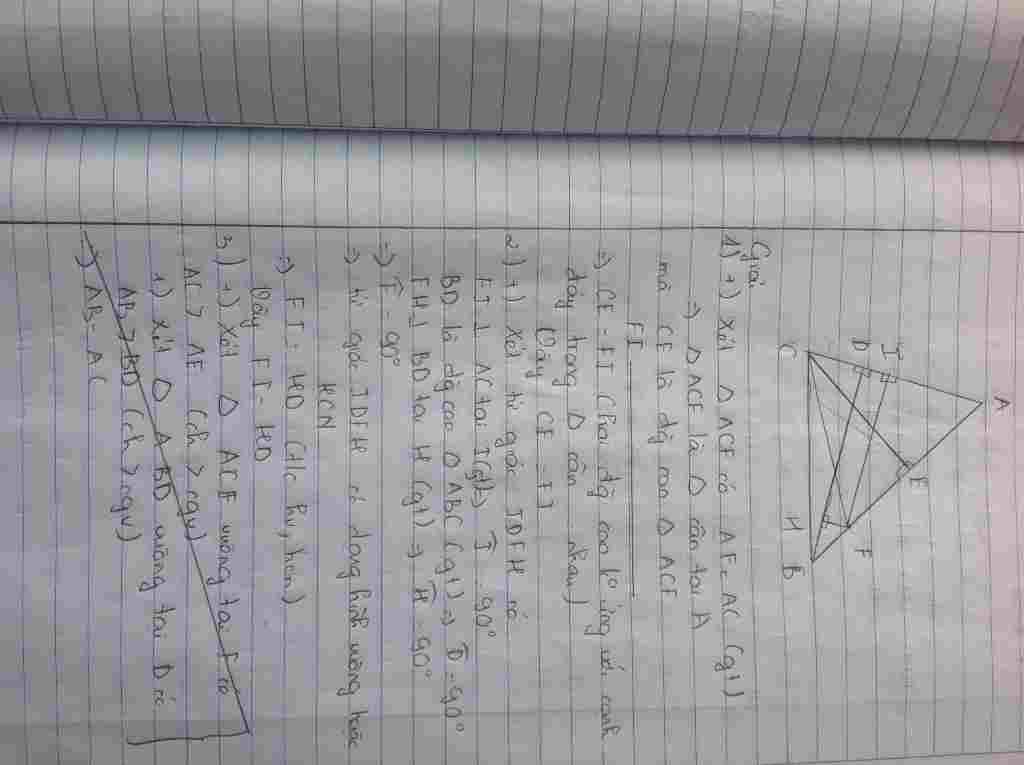 A
I
D
E
F
C
H
B
Giải
1) +) Xét Δ ACF có AF = AC (gt)
=> Δ ACF là Δ cân tại A
mà CE là độ cao Δ ACF
FI
=> CE = FI (Hai độ cao ứng với cạnh
đáy trong Δ cân = nhau)
Vậy CE = FI
2) +) Xét tứ giác IDFH có
FI ⊥ AC tại I (gt) I = 90°
BD là độ cao Δ ABC (gt) => D = 90°
FH ⊥ BD tại H (gt) => H = 90°
=> I = 90°
=> tứ giác IDFH có dạng hình vuông hoặc
HCN
=> FI = HD (t/c hv, hcn)
Vậy FI = HD
3) +) Xét Δ ACE vuông tại E có
AC > AE (ch > cgv)
1) Xét Δ ABD vuông tại D có
AB > BD (ch > cgv)
=> AB - AC